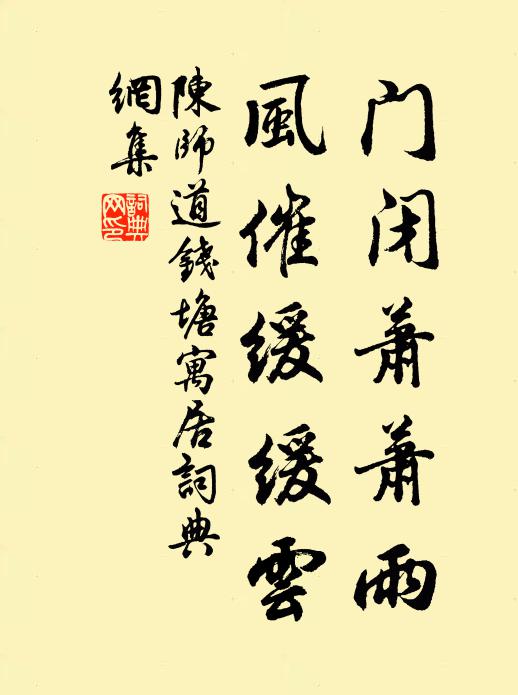 门闭萧萧雨
風催緩緩雲
陳師道錢塘寓居詞典
網集
詞典
网印